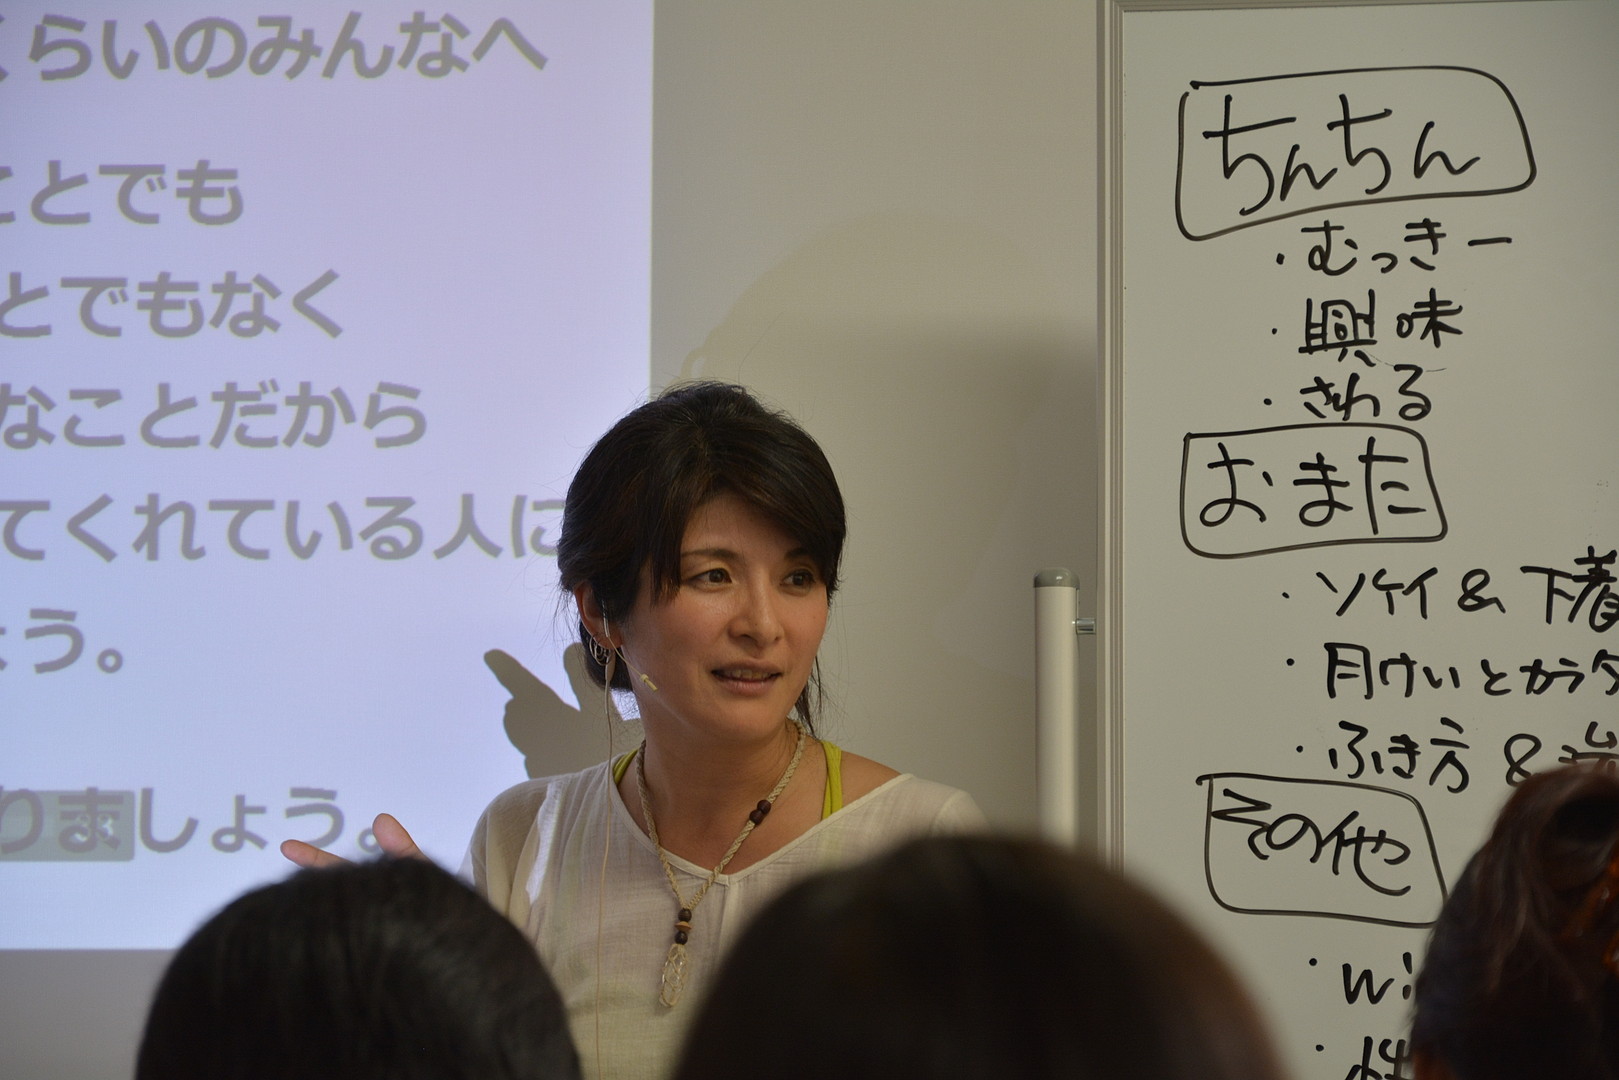 くらいのみんなへ
ことでも
とでもなく
なことだから
てくれている人に
ょう。
りましょう。
ちんちん
・むっきー
・興味
・さわる
おまた
・ソケイ & 下着
・月けいとかラタ
・ふき方 &
その他
・wi
・性